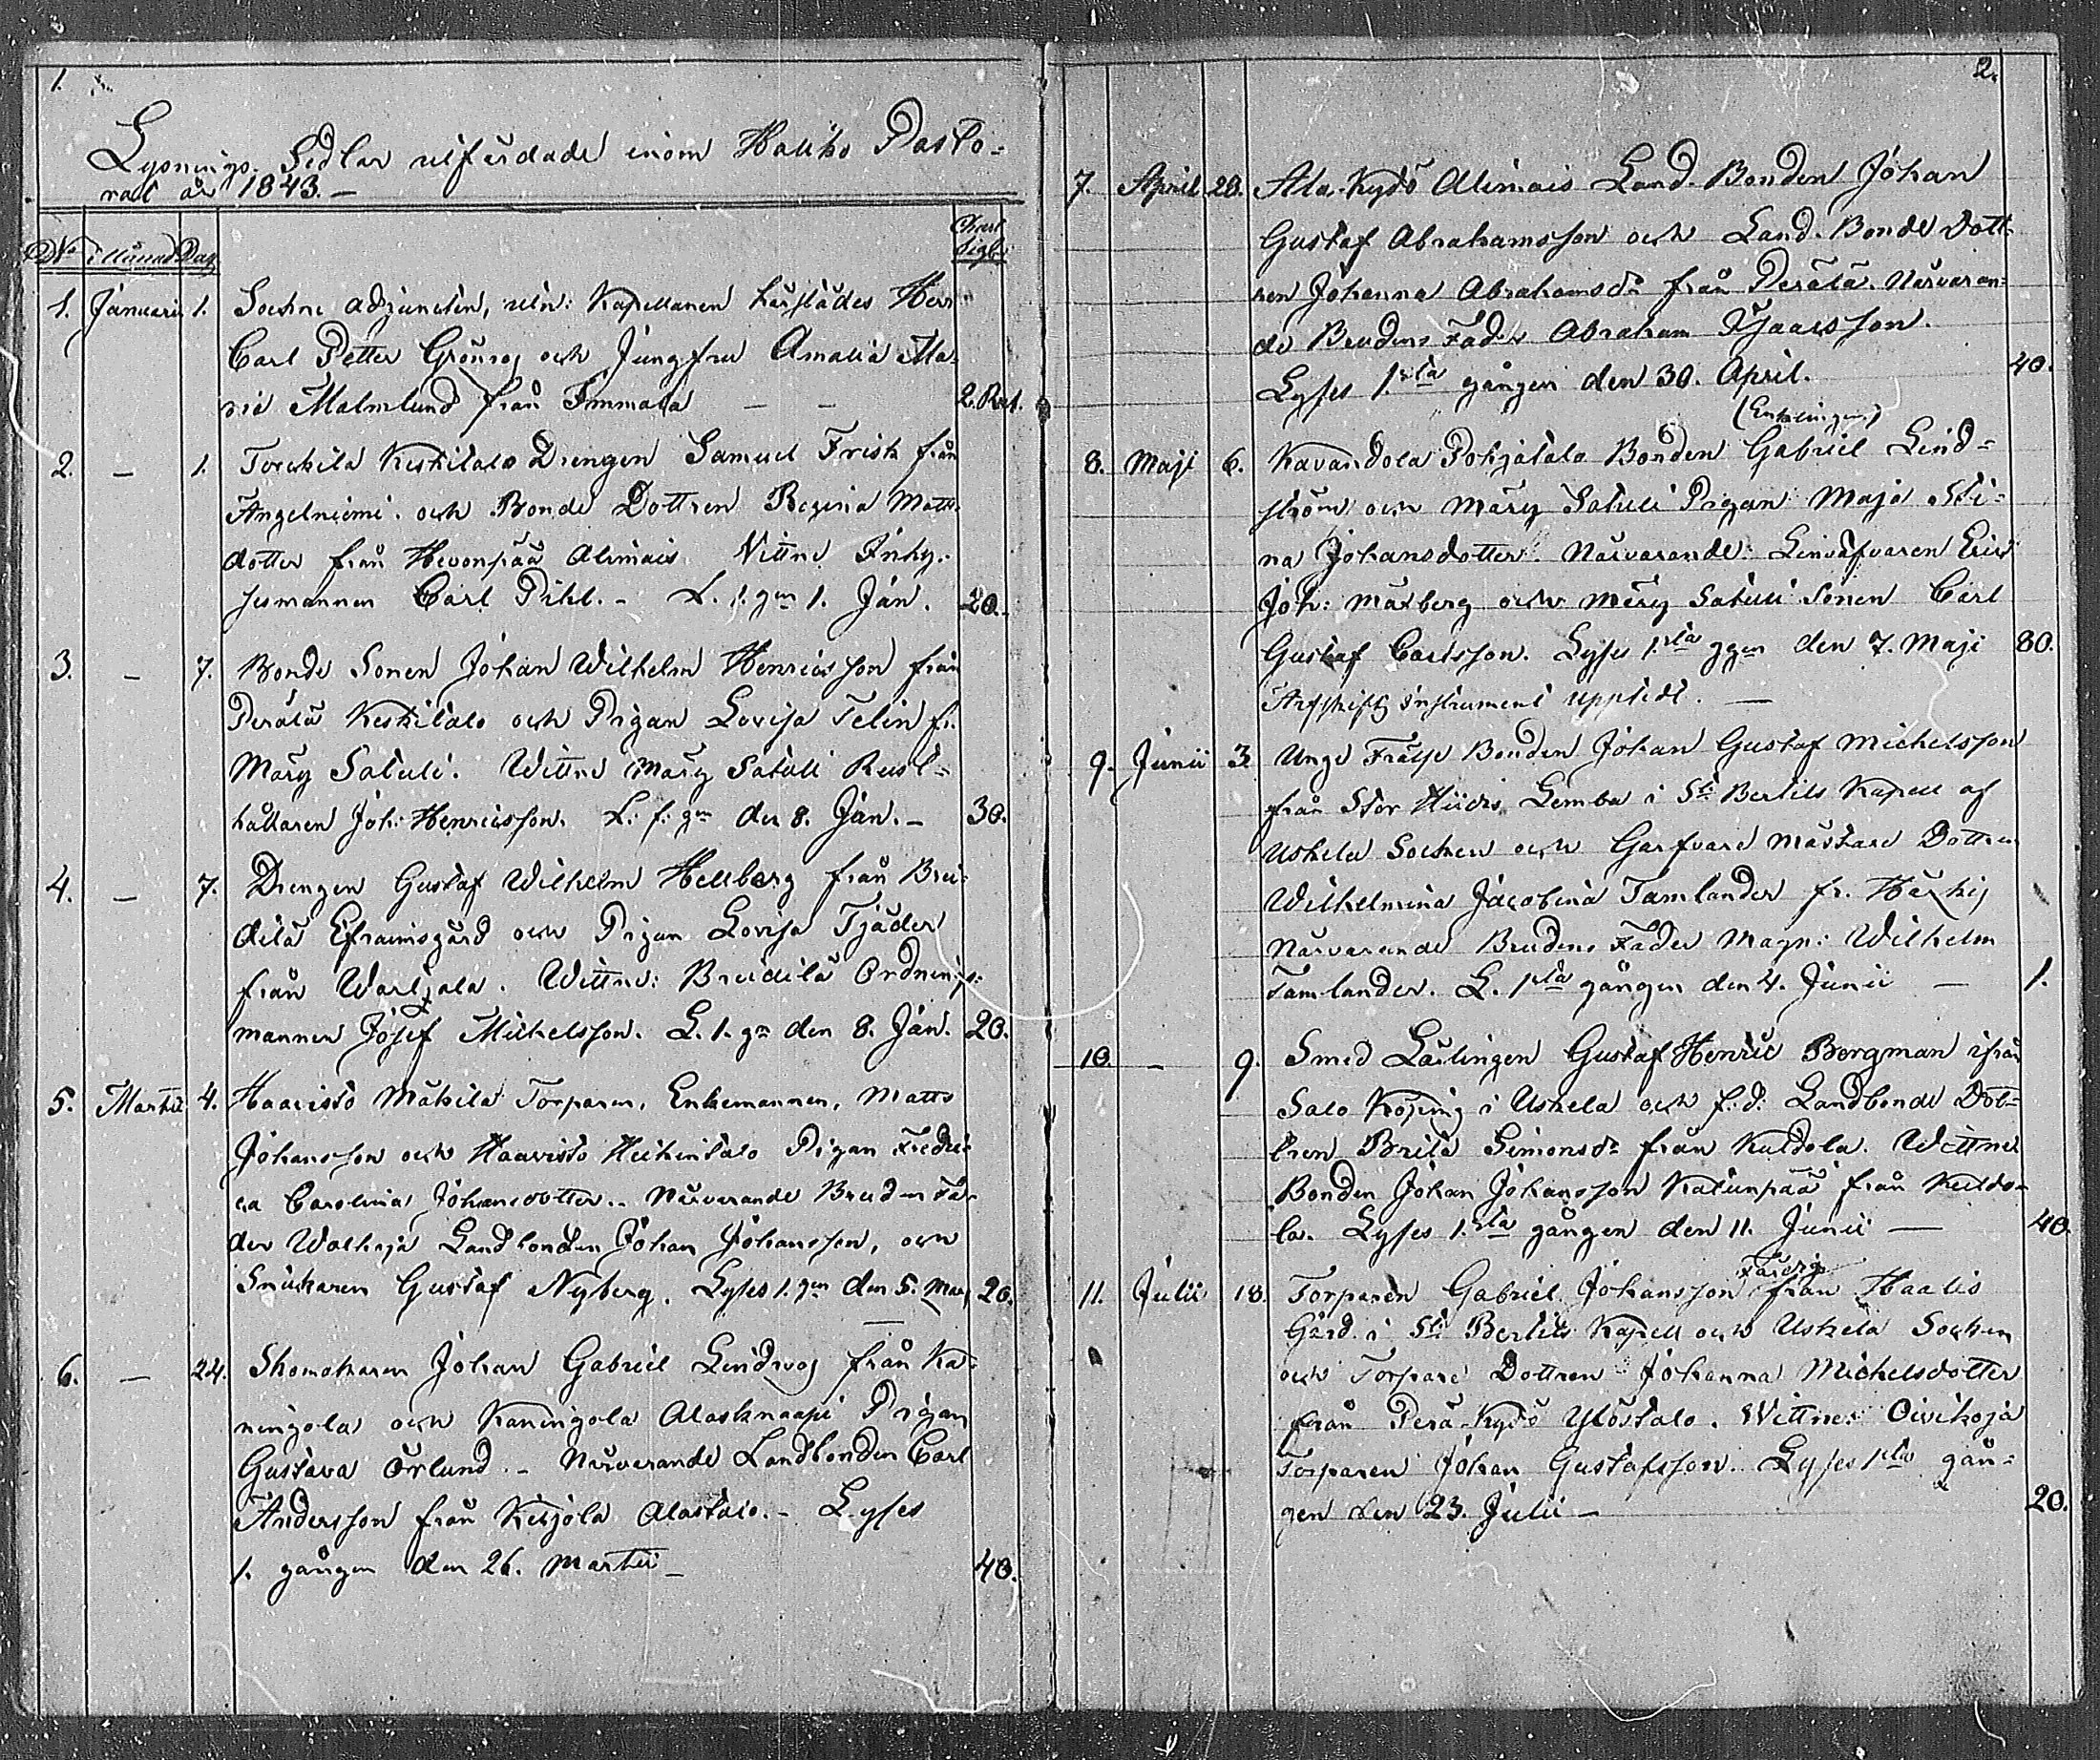 1.
Lysnings-Sedlar utfärdade inom Halikko Pasto-
rat år 1843.-
No Månad Dag Chart Sigl.
1. Januarii 1. Sockne adjuncten, utn: Kapellanen härstädes Herr
Carl Petter Grönroj och Jungfru Amalia Ma-
ria Malmlund från Immala — — 2. Rbl.
2. — 1. Torckila Keskitalo Drengen Samuel Frisk från
Angelniemi och Bonde Dottren Regina Matts
dotter från Hevonpää Alimais. Vittne Inhy-
sesmannen Carl Pihl. - L. 1. gen 1. Jan. 20.
3. — 7. Bonde Sonen Johan Wilhelm Henricsson från
Perälä Keskitalo och Pigan Lovisa Telin fr.
Märy Satuli. Wittne Märy Satuli Rust-
hållaren Joh: Henricsson. L: f: gen den 8. Jan. - 30.
4. — 7. Drengen Gustaf Wilhelm Hellberg från Brei-
dilä Efraimsgård och Pigan Lovisa Tjäder
från Wartjala. Wittne: Breidilä Ordnings-
mannen Josef Michelsson. L. 1. gn den 8. Jan. 20.
5. Martii 4. Haavisto Mäkilä Torparen, Enkemannen, Matts
Johansson och Haavisto Heikintalo Pigan Fredri-
ca Carolina Johansdotter. - Närvarande Brudens Fa-
der Walhoja Landbonden Johan Johansson, och
Snickaren Gustaf Nyberg. Lyses 1. gen den 5. Mar. 20.
6. — 24. Skomakaren Johan Gabriel Lindroj från Ka-
ningola och Kaningola Alasknaapi Pigan
Gustava Örlund. - Närvarande Landbonden Carl
Andersson från Kihjola Alastalo. - Lyses
1. gången den 26. Martii — 40.
2.
7. April 28. Ala-Kydö Alimais Land-Bonden Johan
Gustaf Abrahamsson och Land-Bonde Dott-
ren Johanna Abrahamsdr från Perälä. Närvaran-
de Brudens Fader Abraham Isaacsson.
Lyses 1:sta gången den 30. April. 40.
(Enklingen)
8. Maji 6. Kavandola Pohjatalo Bonden Gabriel Lind-
ström och Märy Satuli Pigan Maja Sti-
na Johansdotter. Närvarande: Linväfvaren Eric
Joh: Maxberg och Märy Satuli Sonen Carl
Gustaf Carlsson. Lyses 1:sta ggen den 7. Maji 80.
Arfskifts instrument upptedt. —
9. Junii 3. Unge Frälse Bonden Johan Gustaf Michelsson
från Stor Hiidis Lemba i St: Bertils Kapell af
Uskela Socken och Garfvare Mästare Dottren
Wilhelmina Jacobina Tamlander fr. Härkis
Närvarande Brudens Fader Magn: Wilhelm
Tamlander. L. 1sta gången den 4. Junii — 1.
10. — 9. Smed Lärlingen Gustaf Henric Bergman ifrån
Salo Köping i Uskela och f: d: Landbonde Dot-
tren Brita Simonsdr från Kuldola. Wittne
Bonden Johan Johansson Katunpää från Kuldo-
la. Lyses 1:sta gången den 11. Junii — 40.
11. Julii 18. Torparen Gabriel Johansson från Haalis
Gård i St: Bertils Kapell och Uskela Socken
och Torpare Dottren Johanna Michelsdotter
från Perä-Kydö Ylöstalo. Wittne: Oivikoja
Torparen Johan Gustafsson. Lyses 1sta gån-
gen den 23. Julii — 20.